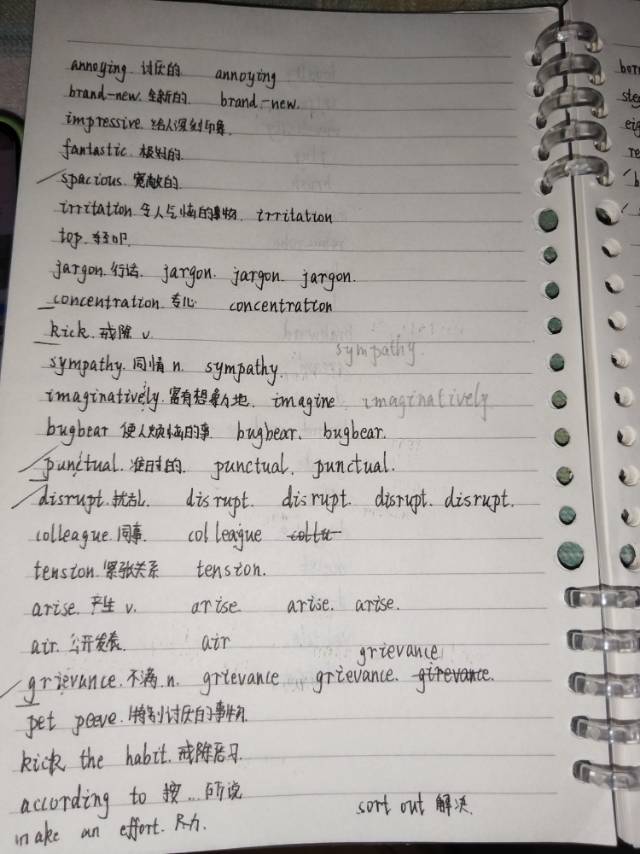 annoying 讨厌的 annoying
brand-new. 全新的 brand-new.
impressive 给人深刻印象.
fantastic 极好的.
spacious 宽敞的
irritation 令人气恼的事物. irritation
top. 轻叩.
jargon. 行话. jargon. jargon. jargon.
concentration 专心 concentration
kick. 戒除 v.
sympathy. 同情 n. sympathy. sympathy.
imaginatively. 富有想象力地. imagine imaginatively
bugbear 使人烦恼的事. bugbear. bugbear.
punctual. 准时的. punctual. punctual.
disrupt. 扰乱. disrupt. disrupt. disrupt. disrupt.
colleague. 同事. colleague
tension. 紧张关系 tension.
arise. 产生 v. arise. arise. arise.
air. 公开发表. air
grievance
grievance. 不满 n. grievance grievance. girevance.
pet peeve. 特别讨厌的事物.
kick the habit. 戒除恶习.
according to 按...所说
sort out 解决.
make an effort. 尽力.